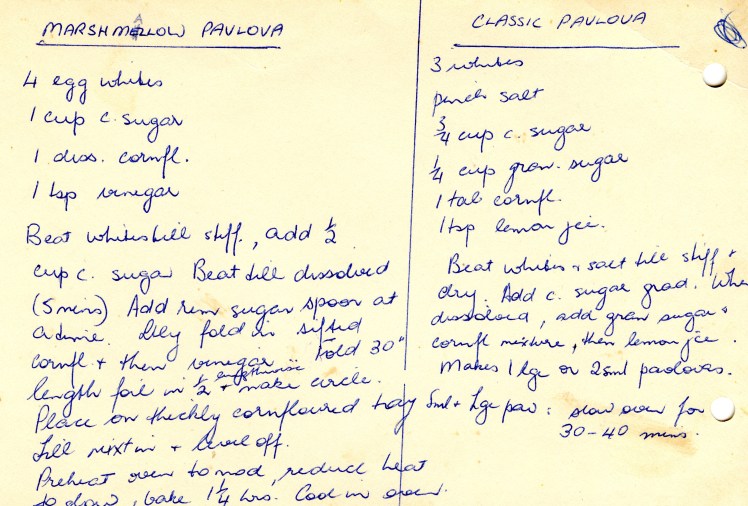 MARSHMALLOW PAVLOVA
4 egg whites
1 cup c. sugar
1 diss. cornfl.
1 tsp vinegar
Beat whites till stiff, add ½
cup c. sugar Beat till dissolved
(5mins) Add rem sugar spoon at
a time. Lily fold in sifted
cornfl + then vinegar Fold 30"
length foil in ½ lengthwise + make circle.
Place on thickly cornfloured tray
Fill mixt in + level off.
Preheat oven to mod, reduce heat
to slow, bake 1¼ hrs. Cool in oven.
CLASSIC PAVLOVA
3 whites
pinch salt
¾ cup c. sugar
¼ cup gran. sugar
1 tab cornfl.
1 tsp lemon jce.
Beat whites + salt till stiff +
dry. Add c. sugar grad. When
dissolved, add gran sugar +
cornfl mixture, then lemon jce.
Makes 1 lge or 2 sml pavlovas.
Sml + Lge pav: slow oven for
30-40 mins.